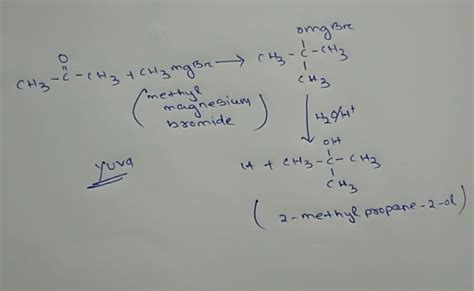 OMgBr
O
CH3-C-CH3 + CH3MgBr → CH3-C-CH3
CH3
(methyl
magnesium
bromide)
H2O/H+
OH
H + CH3-C-CH3
CH3
Yuva
(2-methyl propane-2-ol)